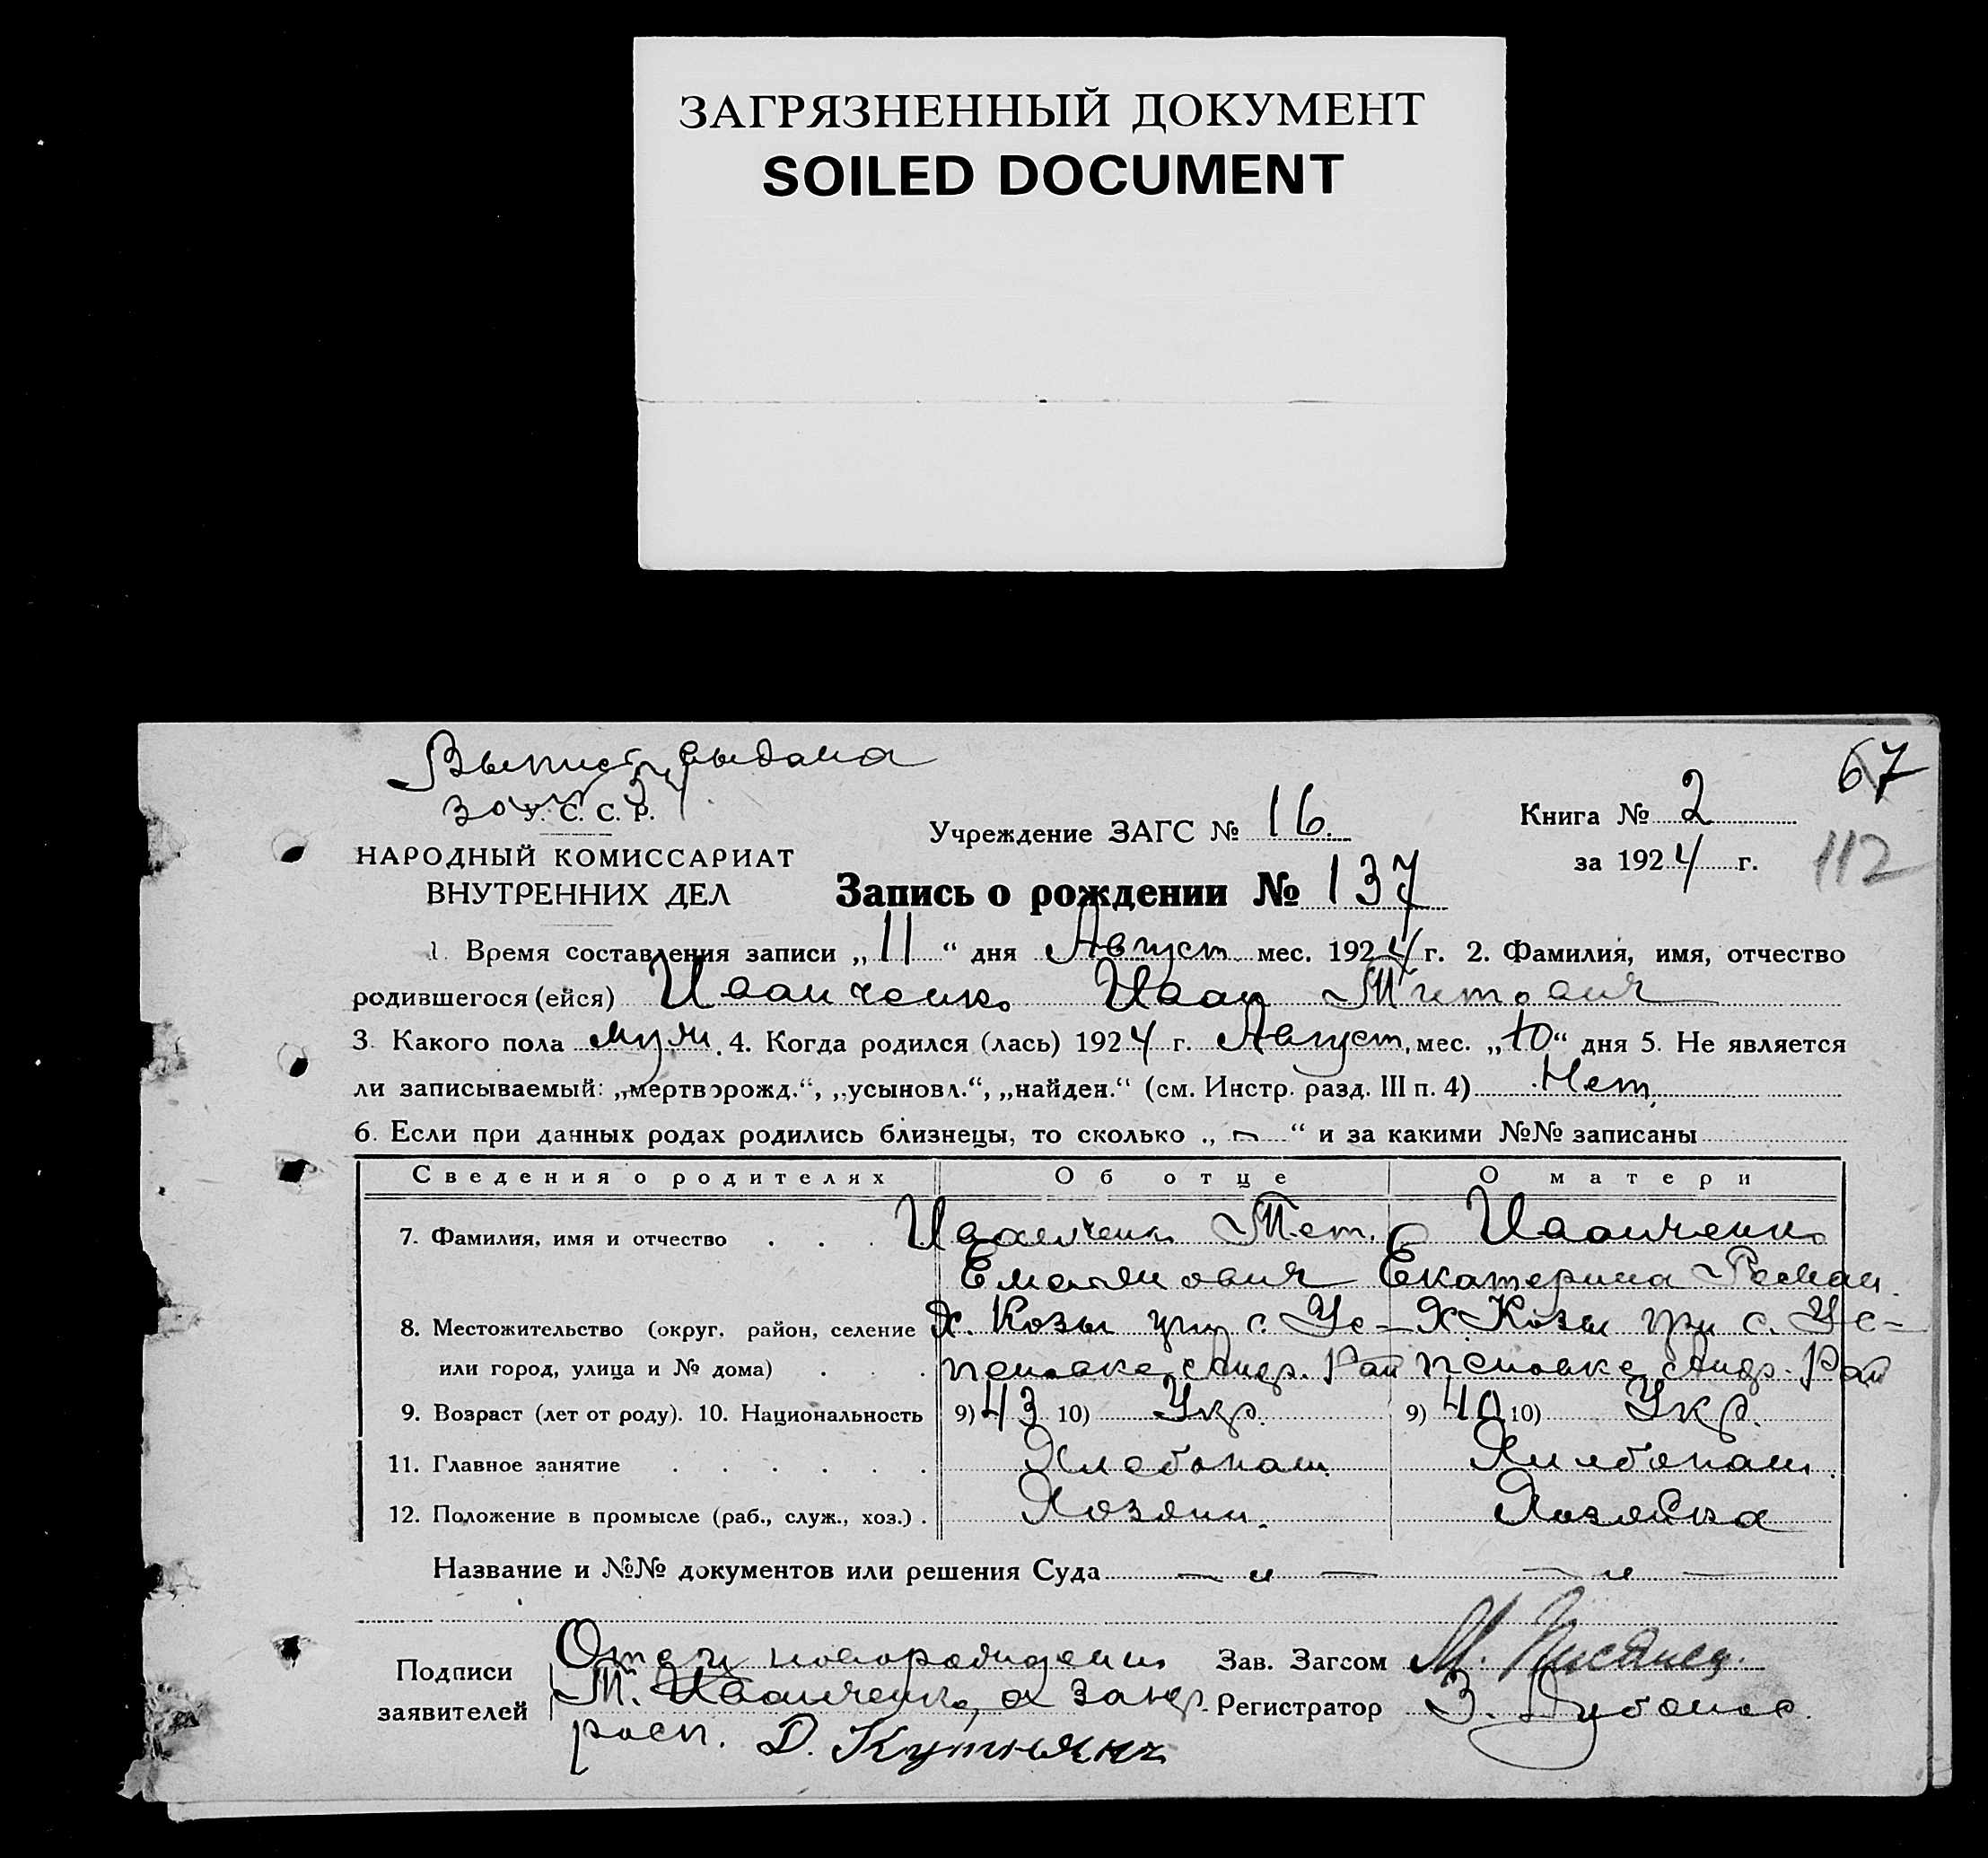 ЗАГРЯЗНЕННЫЙ ДОКУМЕНТ
SOILED DOCUMENT
выдана
67
У. С. С. Р.
Учреждение ЗАГС № 16.
Книга № 2
НАРОДНЫЙ КОМИССАРИАТ
за 1924 г.
112
ВНУТРЕННИХ ДЕЛ
Запись о рождении № 137
1. Время составления записи „11“ дня Август мес. 1924 г. 2. Фамилия, имя, отчество
родившегося (ейся) Иванченко Иван Титович
3. Какого пола муж. 4. Когда родился (лась) 1924 г. Август, мес. „10“ дня 5. Не является
ли записываемый: „мертворожд.“, „усыновл.“, „найден.“ (см. Инстр. разд. III п. 4) Нет
6. Если при данных родах родились близнецы, то сколько „ — “ и за какими №№ записаны
Сведения о родителях Об отце О матери
7. Фамилия, имя и отчество . . . Иванченко Тит. Иванченко
Емельянович Екатерина Роман.
8. Местожительство (округ, район, селение Х. Козы при с. Ус- Х. Козы при с. Ус-
или город, улица и № дома) . . . пеновке Андр. Рай пеновке Андр. Рай
9. Возраст (лет от роду). 10. Национальность 9) 43 10) Укр. 9) 40 10) Укр.
11. Главное занятие . . . . . . Хлебопаш. Хлебопаш.
12. Положение в промысле (раб., служ., хоз.) . Хозяин. Хозяйка
Название и №№ документов или решения Суда — и — — и —
Подписи Отец новорожден Зав. Загсом М. Писанец.
заявителей Т. Иванченко, а за негр. Регистратор З.
расп. D.